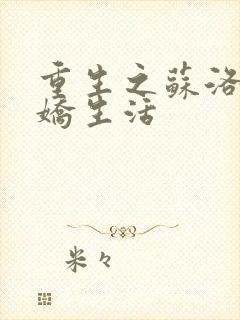 重生之蘇洛
嬌生活
米々